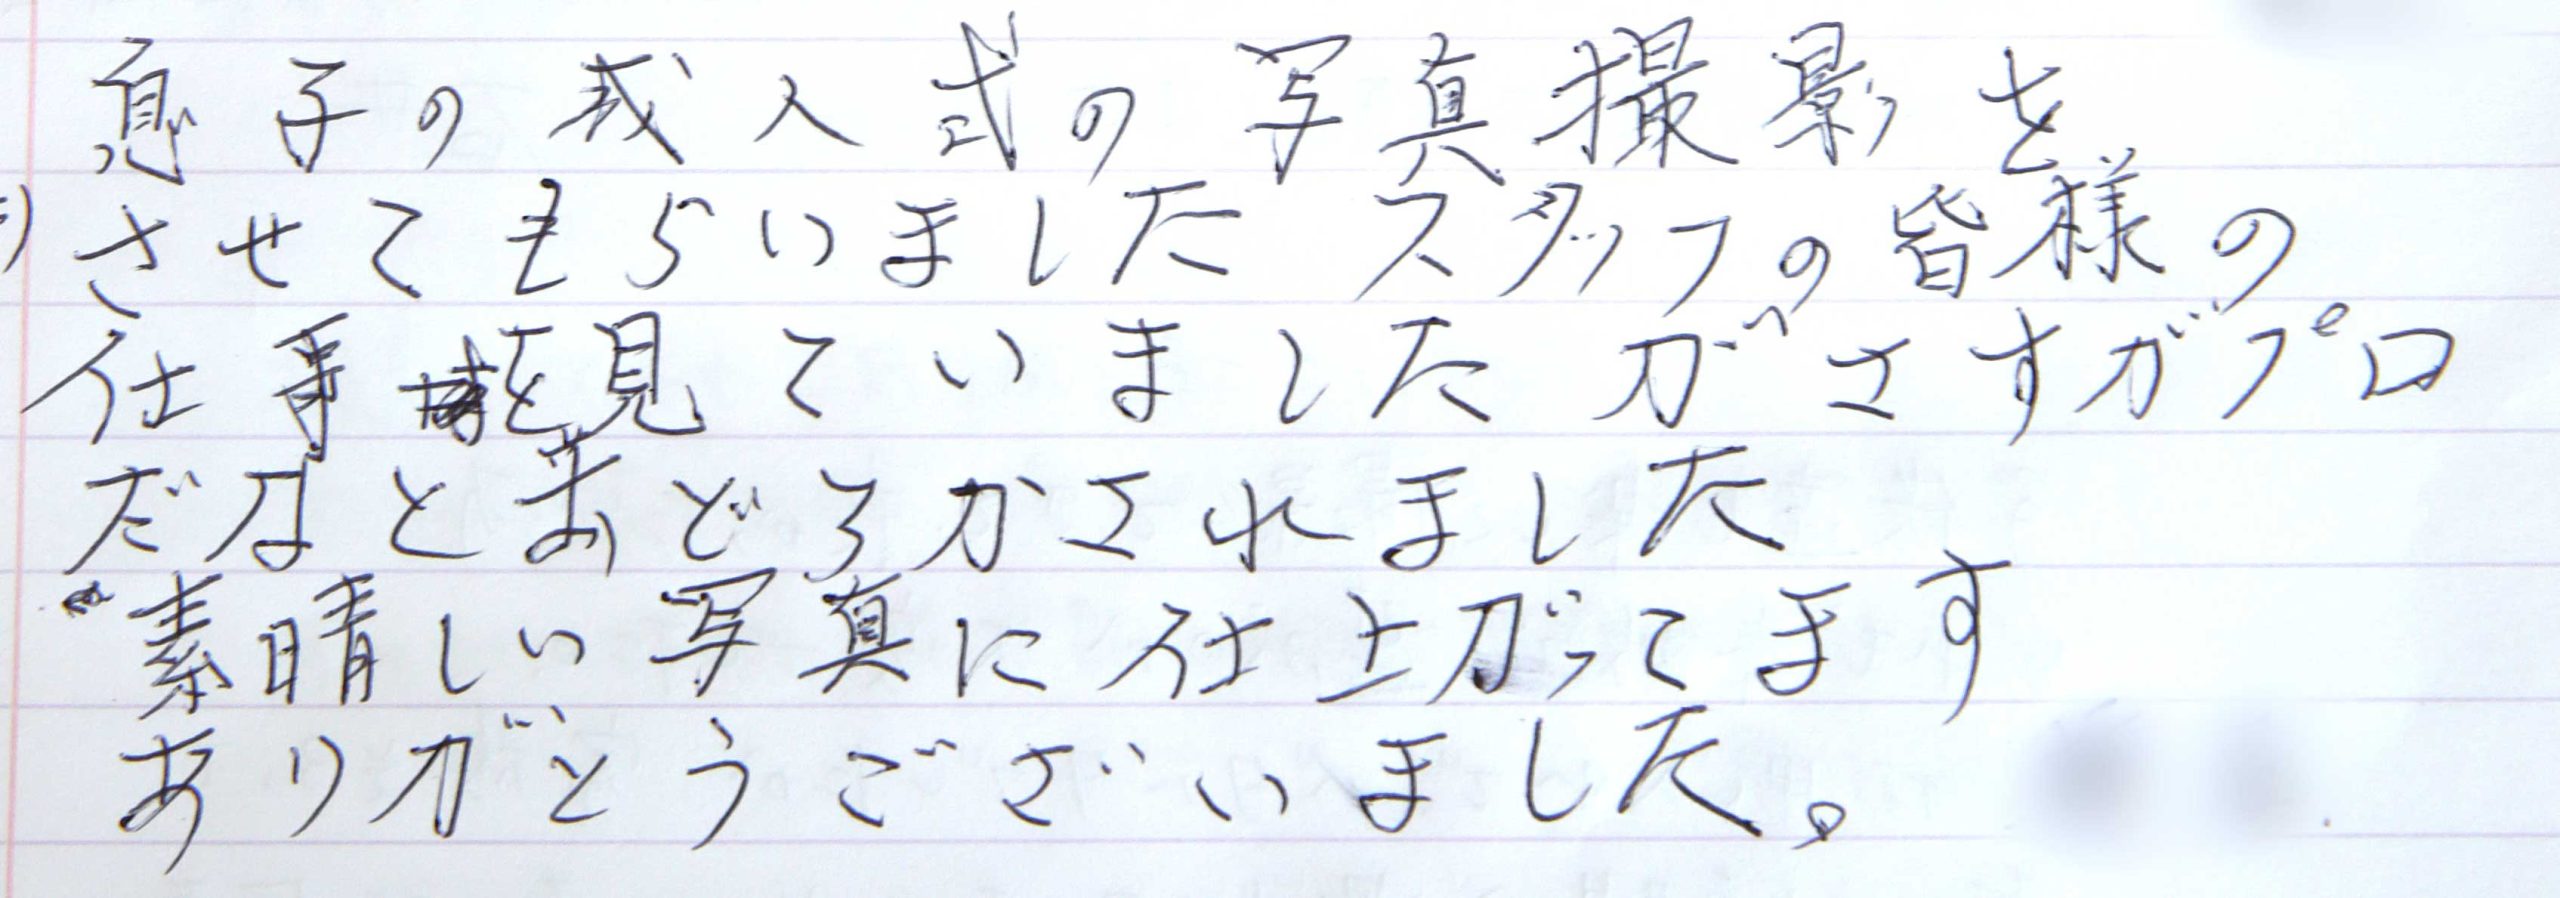 息子の成人式の写真撮影を
させてもらいました スタッフの皆様の
仕事を見ていましたがさすがプロ
だなとおどろかされました
素晴しい写真に仕上がってます
ありがとうございました。